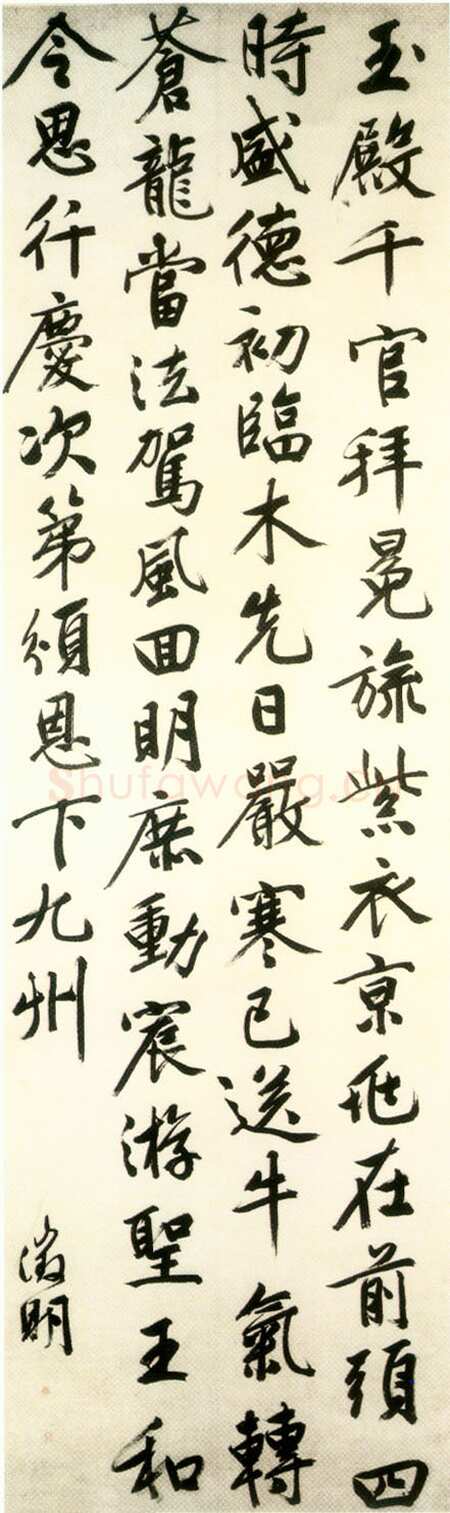 玉殿千官拜冕旒紫衣京兆在前頭四
時盛德初臨木先日嚴寒已送牛氣轉
蒼龍當法駕風回明庶動宸游聖王和
令思行慶次第頒恩下九州
徵明
Shufawang.cn